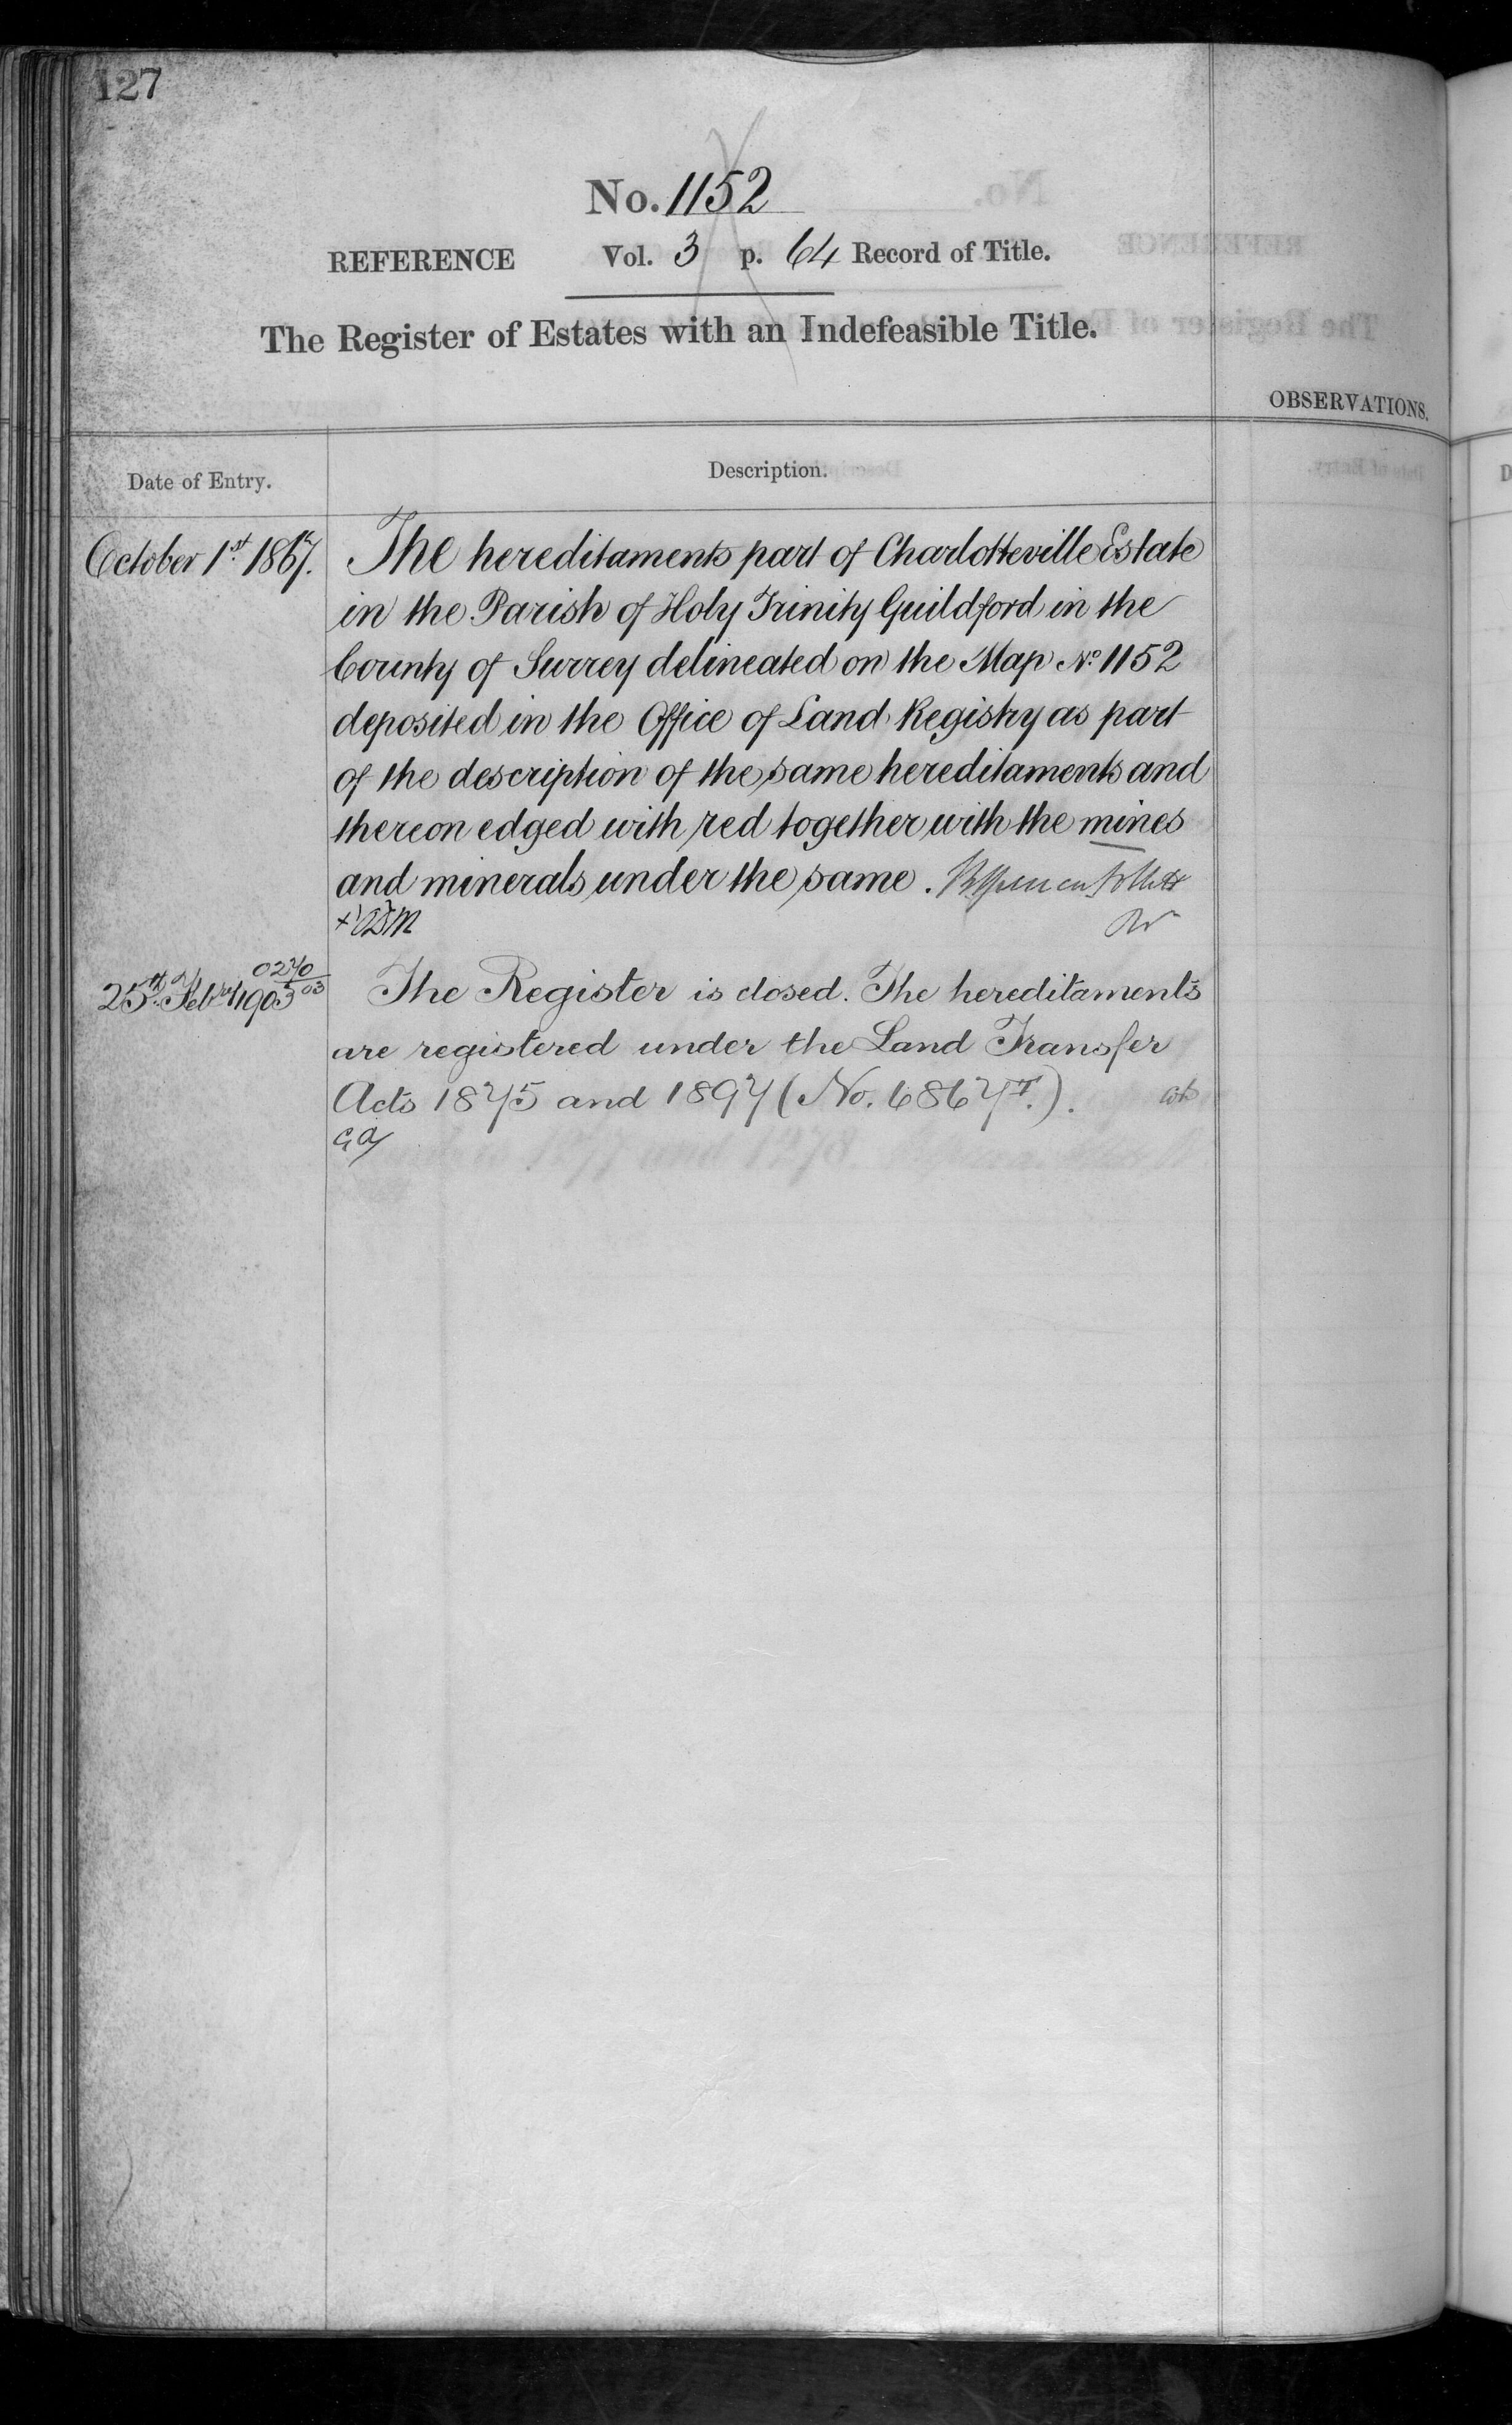 127
No. 1152
REFERENCE Vol. 3 p. 64 Record of Title.
The Register of Estates with an Indefeasible Title.
OBSERVATIONS.
Date of Entry. Description.
October 1st 1867. The hereditaments part of Charlotteville Estate
in the Parish of Holy Trinity Guildford in the
County of Surrey delineated on the Map No 1152
deposited in the Office of Land Registry as part
of the description of the same hereditaments and
thereon edged with red together with the mines
and minerals under the same.
0270
03
25th Feb 1903 The Register is closed. The hereditaments
are registered under the Land Transfer
Acts 1875 and 1897 (No. 6867